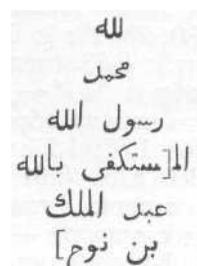 لله
محمد
رسول الله
الم[ستكفى بالله
عبد الملك
بن نوح]